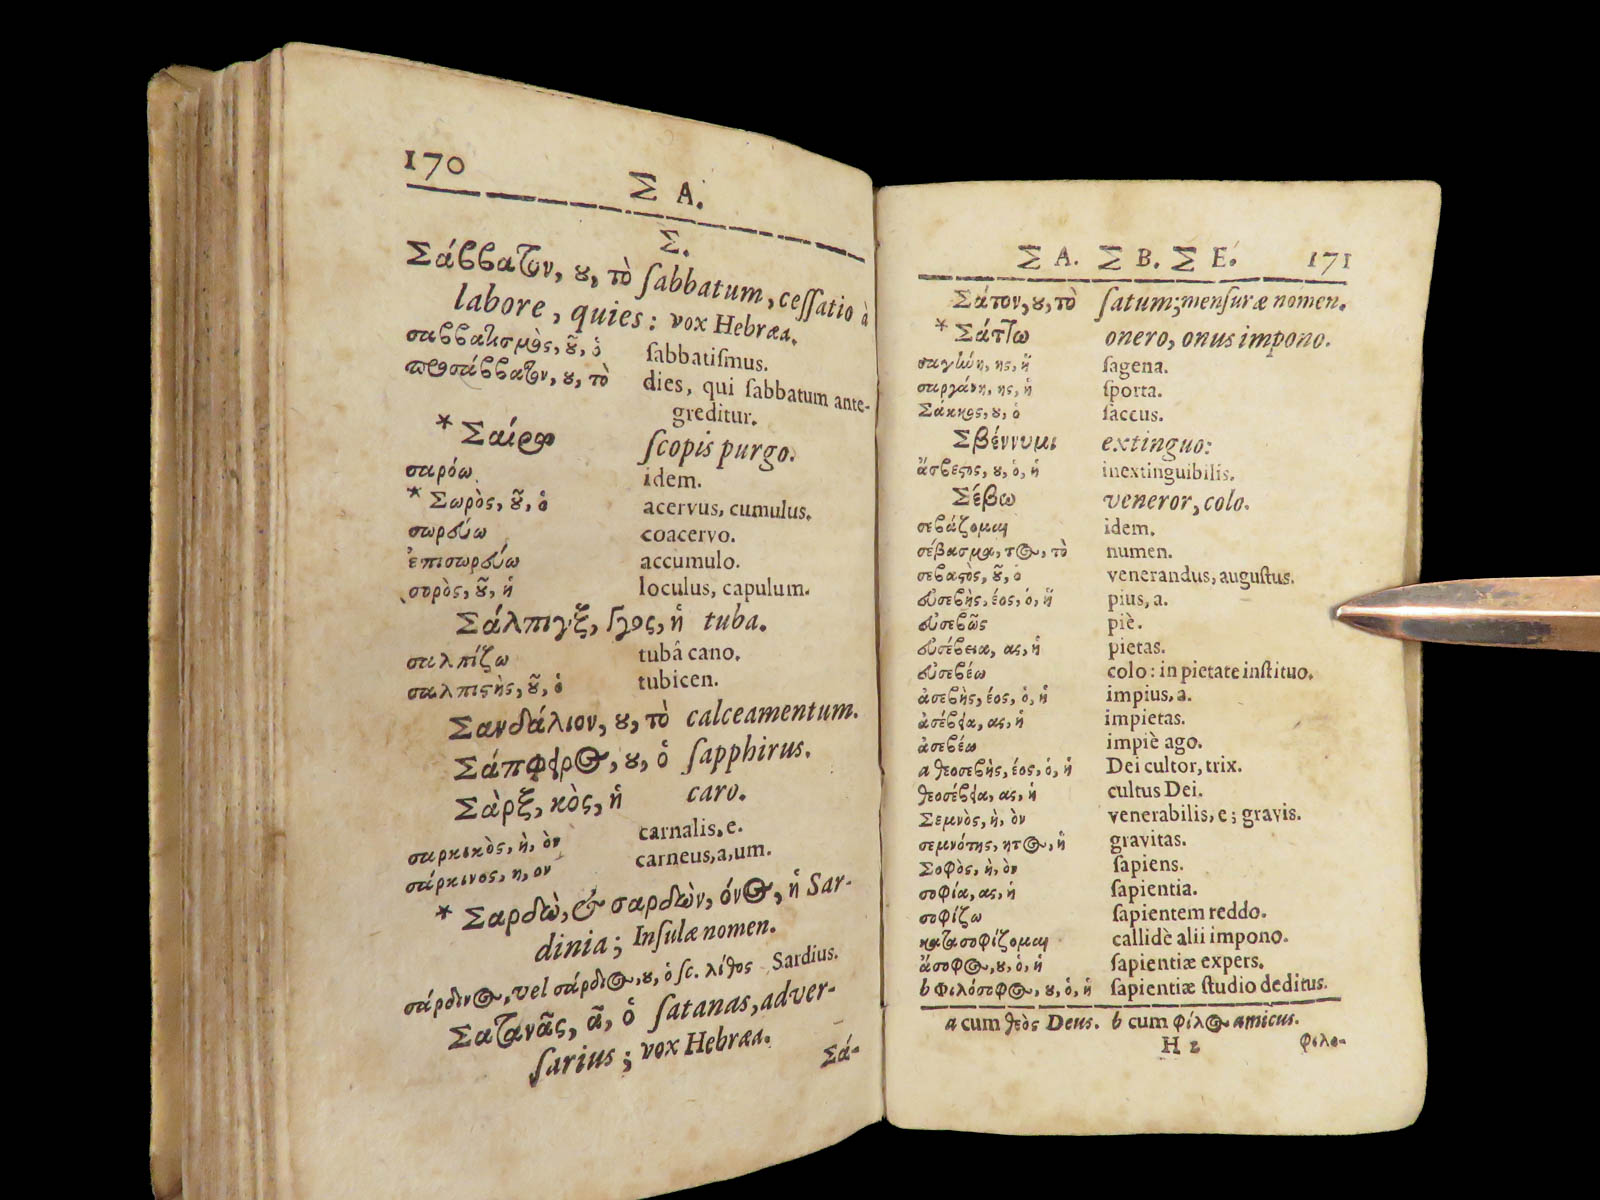 170
Σ Α.
Σ.
Σάββατον, ου, τὸ ſabbatum, ceſſatio à
labore, quies: vox Hebræa.
σαββατισμὸς, οῦ, ὁ ſabbatiſmus.
προσάββατον, ου, τὸ dies, qui ſabbatum ante-
greditur.
* Σαίρω ſcopis purgo.
σαρόω idem.
* Σωρὸς, οῦ, ὁ acervus, cumulus.
σωρεύω coacervo.
ἐπισωρεύω accumulo.
σορὸς, οῦ, ἡ loculus, capulum.
Σάλπιγξ, ιγγος, ἡ tuba.
σαλπίζω tubâ cano.
σαλπιςὴς, οῦ, ὁ tubicen.
Σανδάλιον, ου, τὸ calceamentum.
Σάπφειρος, ου, ὁ ſapphirus.
Σὰρξ, κὸς, ἡ caro.
σαρκικὸς, ὴ, ὸν carnalis, e.
σάρκινος, η, ον carneus, a, um.
* Σαρδὼ, & σαρδὼν, όνος, ἡ Sar-
dinia; Inſulæ nomen.
σάρδινος, vel σάρδιος, ου, ὁ ſc. λίθος Sardius.
Σατανᾶς, ᾶ, ὁ ſatanas, adver-
ſarius; vox Hebræa.
Σά-
Σ Α. Σ Β. Σ Ε. 171
Σάτον, ου, τὸ ſatum; menſuræ nomen.
* Σάττω onero, onus impono.
σαγήνη, ης, ἡ ſagena.
σαργάνη, ης, ἡ ſporta.
Σάκκος, ου, ὁ ſaccus.
Σβέννυμι extinguo:
ἄσβεςος, ου, ὁ, ἡ inextinguibilis.
Σέβω veneror, colo.
σεβάζομαι idem.
σέβασμα, τος, τὸ numen.
σεβαςὸς, οῦ, ὁ venerandus, auguſtus.
εὐσεβὴς, έος, ὁ, ἡ pius, a.
εὐσεβῶς piè.
εὐσέβεια, ας, ἡ pietas.
εὐσεβέω colo: in pietate inſtituo.
ἀσεβὴς, έος, ὁ, ἡ impius, a.
ἀσέβεια, ας, ἡ impietas.
ἀσεβέω impiè ago.
a θεοσεβὴς, έος, ὁ, ἡ Dei cultor, trix.
θεοσέβεια, ας, ἡ cultus Dei.
Σεμνὸς, ὴ, ὸν venerabilis, e; gravis.
σεμνότης, ητος, ἡ gravitas.
Σοφὸς, ὴ, ὸν ſapiens.
σοφία, ας, ἡ ſapientia.
σοφίζω ſapientem reddo.
κατασοφίζομαι callidè alii impono.
ἄσοφος, ου, ὁ, ἡ ſapientiæ expers.
b Φιλόσοφος, ου, ὁ, ἡ ſapientiæ ſtudio deditus.
a cum θεὸς Deus. b cum φίλος amicus.
H 2 φιλο-